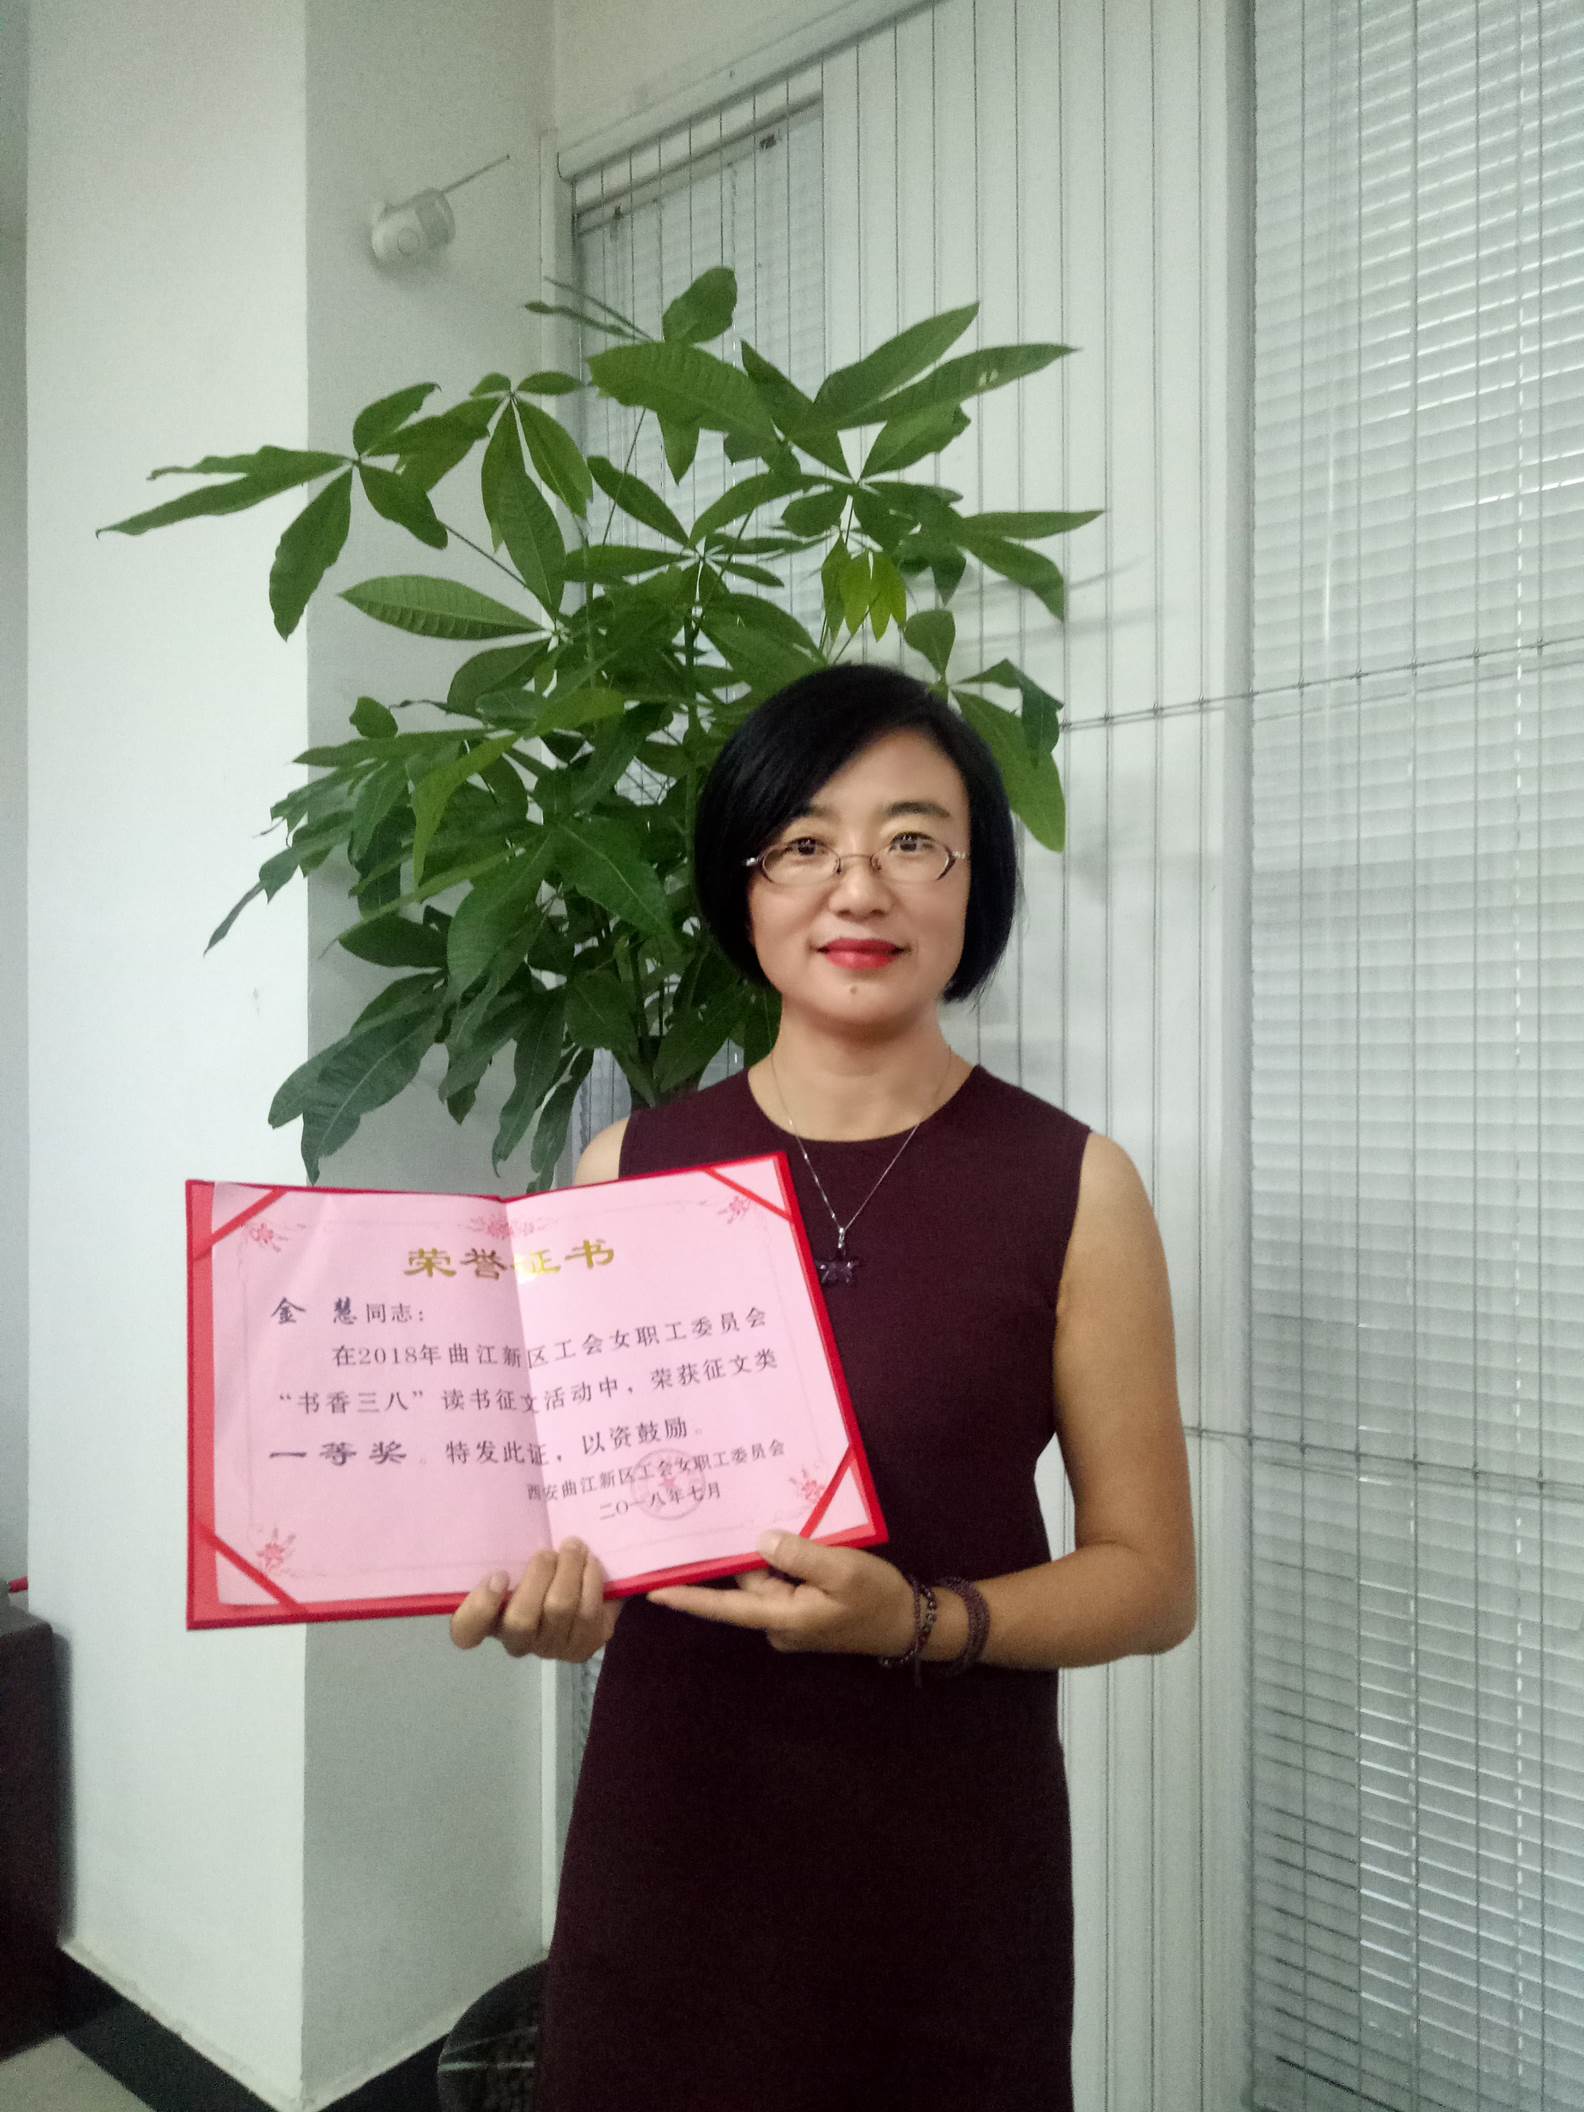 荣誉证书
金 慧同志：
在2018年曲江新区工会女职工委员会
“书香三八”读书征文活动中，荣获征文类
一等奖。特发此证，以资鼓励。
西安曲江新区工会女职工委员会
二〇一八年七月